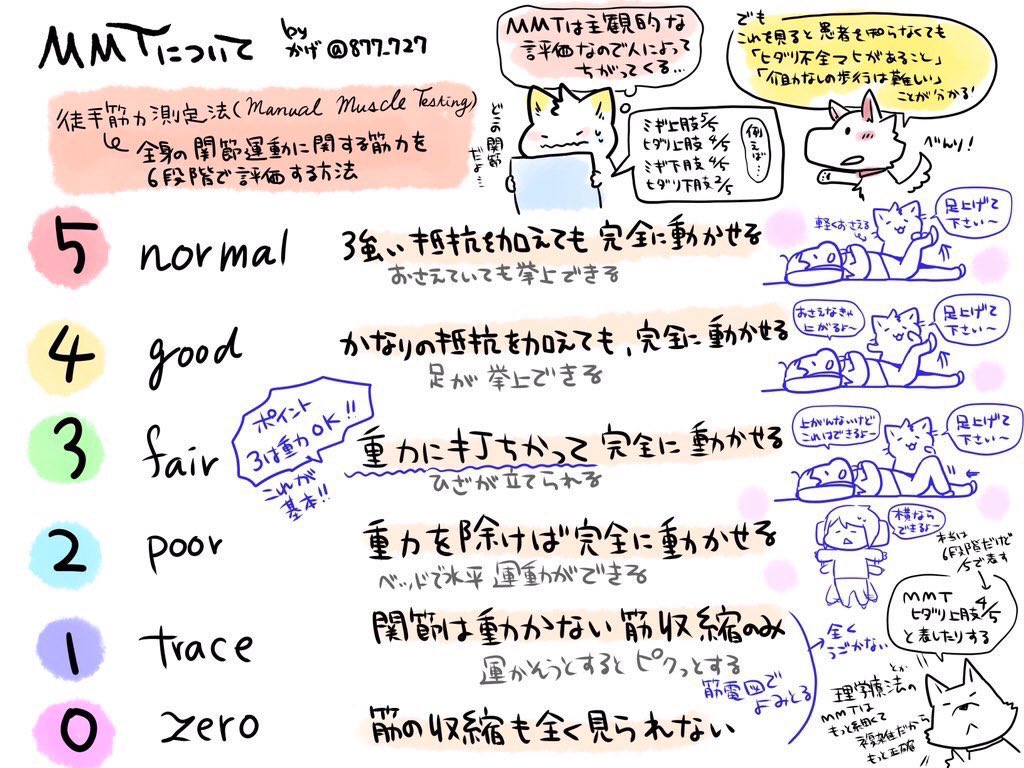 MMTについて
by
かげ@877_727
徒手筋力測定法(Manual Muscle Testing)
全身の関節運動に関する筋力を
6段階で評価する方法
MMTは主観的な
評価なので人によって
ちがってくる…
どこの関節
だよ…
例えば…
ミギ上肢5/5
ヒダリ上肢4/5
ミギ下肢4/5
ヒダリ下肢2/5
でも
これを見ると患者を知らなくても
「ヒダリ不全マヒがあること」
「介助なしの歩行は難しい」
ことが分かる!
べんり!
5 normal 強い抵抗を加えても完全に動かせる
おさえていても挙上できる
軽くおさえる
足上げて
下さい〜
4 good かなりの抵抗を加えても、完全に動かせる
足が挙上できる
おさえなきゃ
上がるよー
足上げて
下さい〜
3 fair 重力に打ちかって完全に動かせる
ひざが立てられる
ポイント
3は重力OK!!
これが
基本!!
上がんないけど
これはできるよー
足上げて
下さい〜
2 poor 重力を除けば完全に動かせる
ベッドで水平運動ができる
横なら
できるよー
本当は
6段階だけど
/5で表す
MMT
ヒダリ上肢4/5
と表したりする
1 trace 関節は動かない筋収縮のみ
運かそうとするとピクっとする
筋電図で
よみとる
全く
うごかない
0 zero 筋の収縮も全く見られない
とか
理学療法の
MMTは
もっと細くて
複雑だから
もっと正確